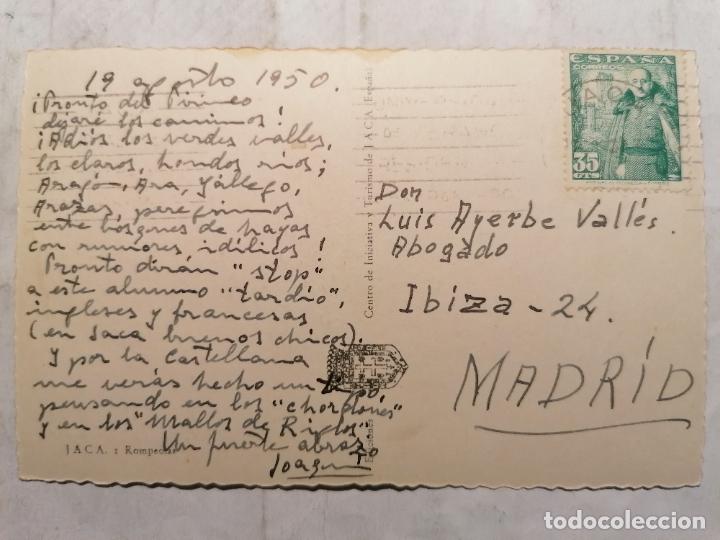 19 agosto 1950.
¡Pronto del Pirineo
dejaré los caminos!
¡Adiós los verdes valles,
los claros, hondos ríos;
Aragón, Ara, Gállego,
Arazas, peregrinos
entre bosques de hayas
con rumores idílicos!
Pronto dirán "stop"
a este alumno "tardío",
ingleses y francesas
(en Jaca buenos chicos).
Y por la Castellana
me verás hecho un tipo
pensando en los "chordones"
y en los "Mallos de Riglos"
Un fuerte abrazo
Joaquín
JACA. 1 Rompeolas
Centro de Iniciativa y Turismo de JACA (España)
Ediciones
ESPAÑA
CORREOS
35
CTS
Don
Luis Ayerbe Vallés.
Abogado
Ibiza-24.
MADRID
todocoleccion